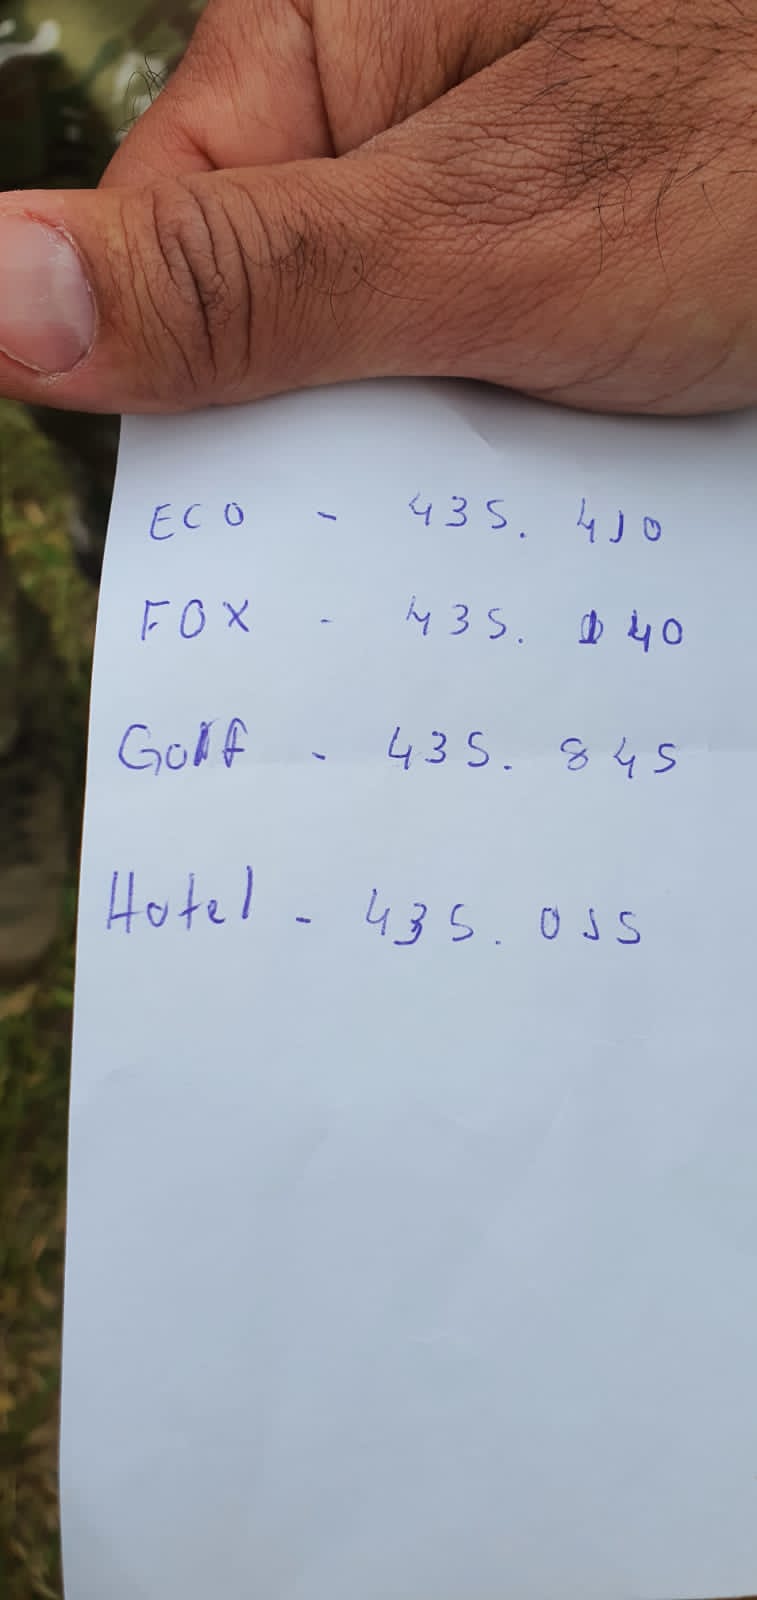 ECO - 435. 410
FOX - 435. 140
Golf - 435. 845
Hotel - 435. 055